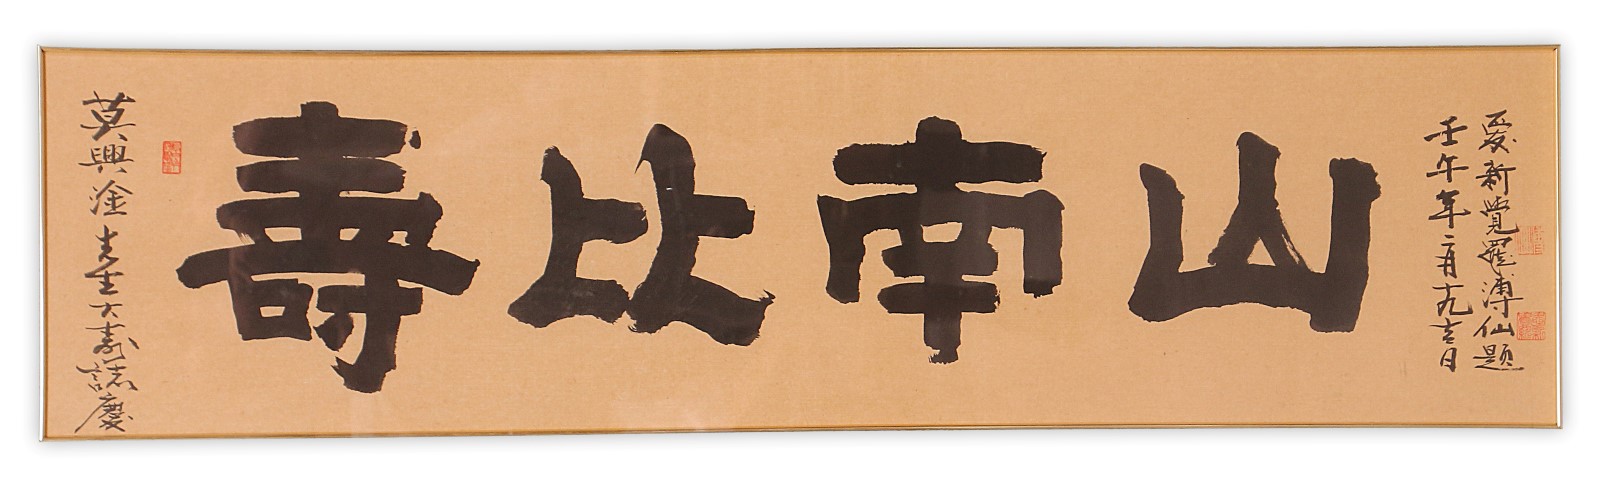 莫興淦先生大壽誌慶
壽比南山
壬午年二月十九吉日
愛新覺羅溥仙題